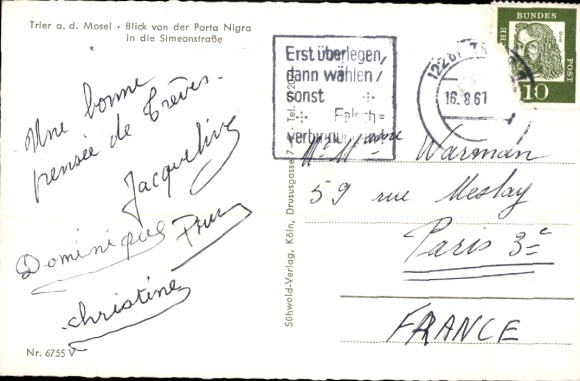 Trier a. d. Mosel · Blick von der Porta Nigra
in die Simeonstraße
Une bonne
pensée de Trèves.
Jacqueline
Dominique
Christine
Nr. 6755 V
Sühwold-Verlag, Köln, Drususgasse 7
Erst überlegen,
dann wählen/
sonst
Falsch=
16.8.61
BUNDES
POST
10
Mr Mme Warman
59 rue Meslay
Paris 3e
FRANCE